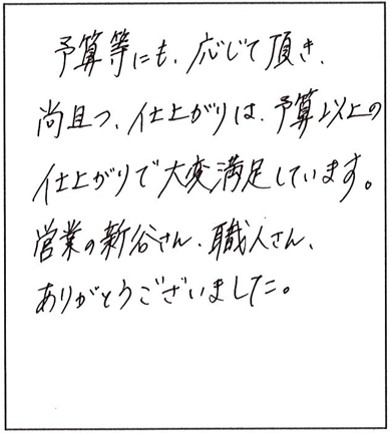 予算等にも、応じて頂き、
尚且つ、仕上がりは、予算以上の
仕上がりで大変満足しています。
営業の新谷さん、職人さん、
ありがとうございました。